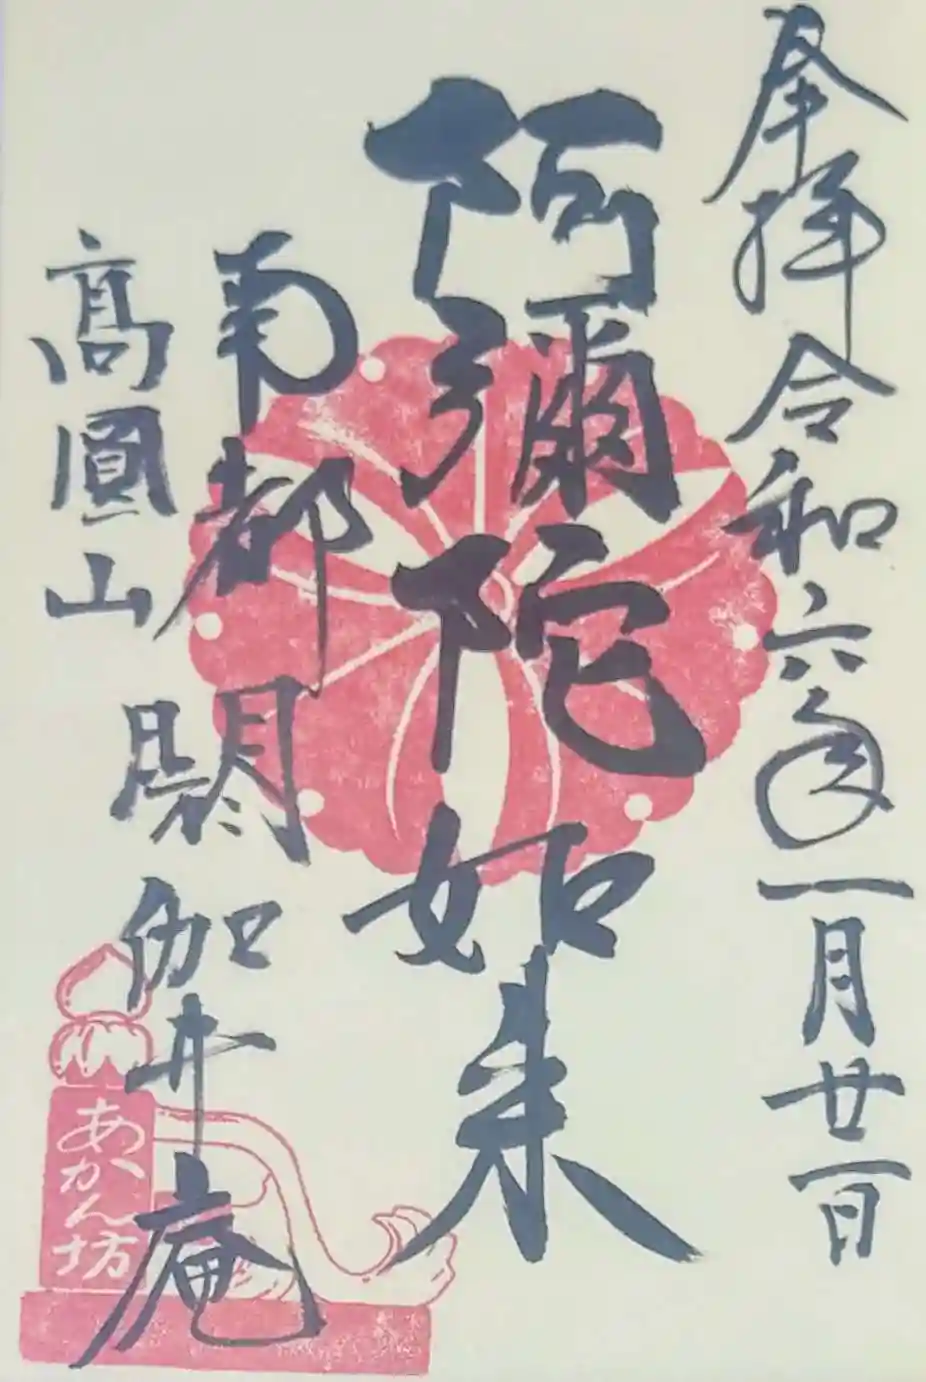 奉拝 令和六年一月廿一日
阿彌陀如来
南都
高圓山
閼伽井庵
あかん坊